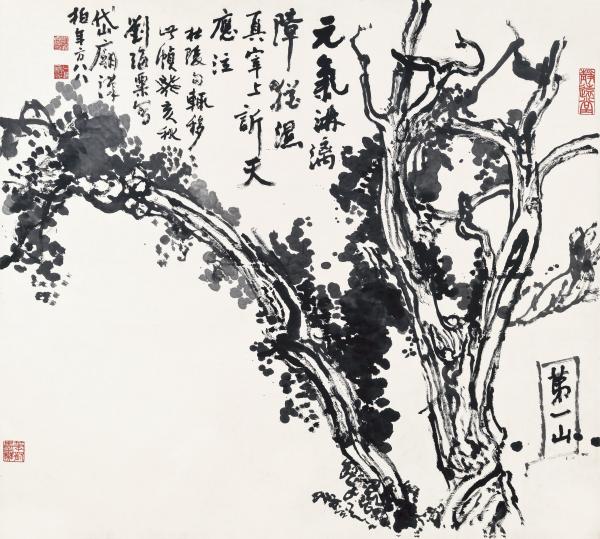 元氣淋漓
障猶濕
真宰上訴天
應泣
杜陵句輒移
此幀癸亥秋
劉海粟寫
岱廟漢
柏年方八八
第一山